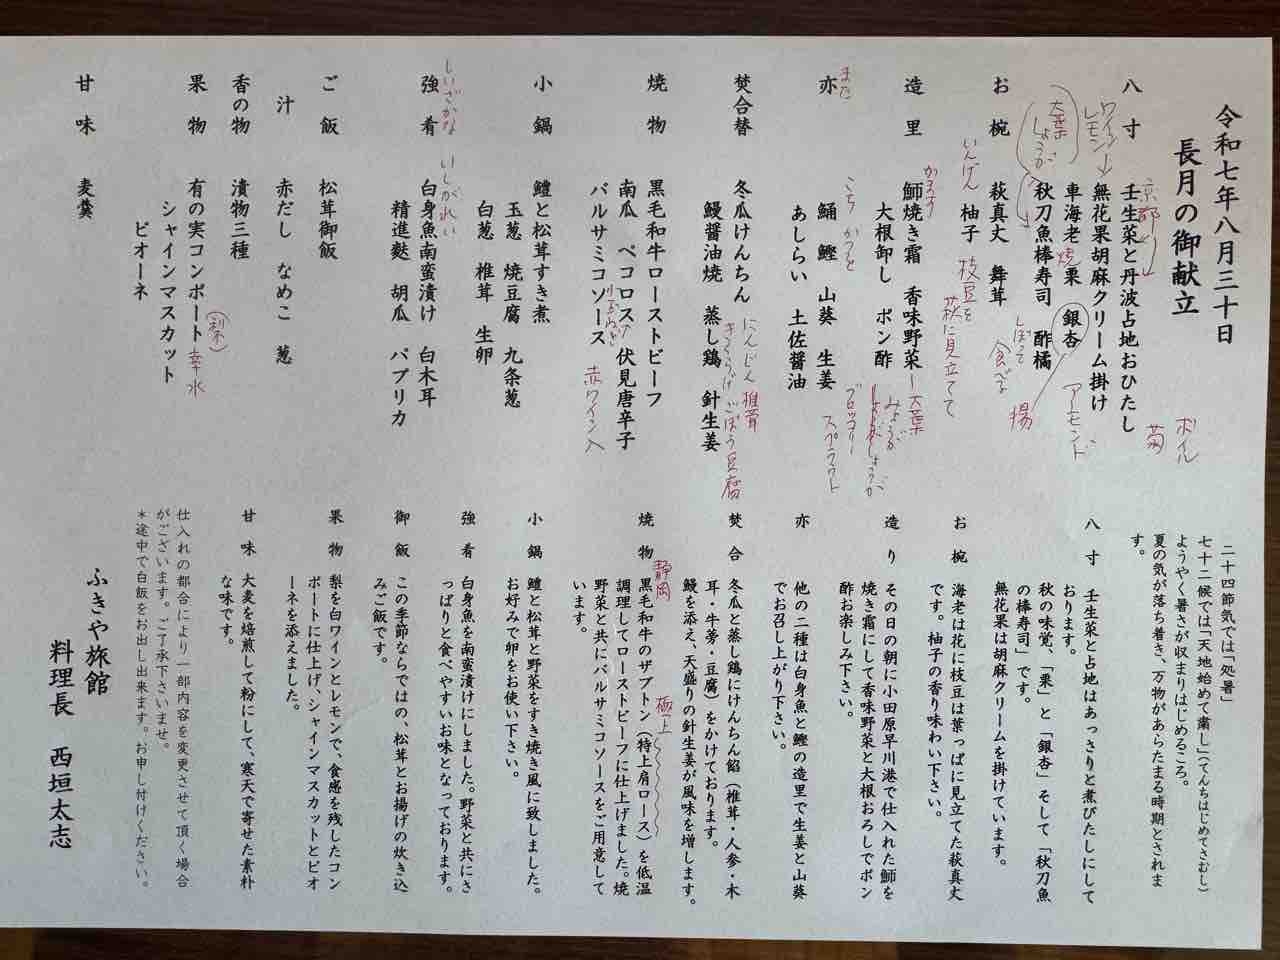 令和七年八月三十日
長月の御献立
八寸 壬生菜と丹波占地おひたし
無花果胡麻クリーム掛け
車海老 栗 銀杏
秋刀魚棒寿司 酢橘
お椀 萩真丈 舞茸
柚子
造里 鰤焼き霜 香味野菜
大根卸し ポン酢
亦 鯒 鰹 山葵 生姜
あしらい 土佐醤油
焚合替 冬瓜けんちん
鰻醤油焼 蒸し鶏 針生姜
焼物 黒毛和牛ローストビーフ
南瓜 ペコロス 伏見唐辛子
バルサミコソース
小鍋 鱧と松茸すき煮
玉葱 焼豆腐 九条葱
白葱 椎茸 生卵
強肴 白身魚南蛮漬け 白木耳
精進麩 胡瓜 パプリカ
ご飯 松茸御飯
汁 赤だし なめこ 葱
香の物 漬物三種
果物 有の実コンポート
シャインマスカット
ピオーネ
甘味 麦羹
京都
ワイン
レモン
大葉
しょうが
焼
ボイル
菊
アーモンド
揚
しぼって
食べる
いんげん
枝豆を
萩に見立てて
大葉
みょうが
しょうが
ブロッコリー
スプラウト
また
こち
かつお
にんじん 椎茸
きくらげ ごぼう 豆腐
赤ワイン入
しいざかな
いしがれい
(梨)
幸水
静岡
極上
二十四節気では「処暑」
七十二候では「天地始めて粛し」(てんちはじめてさむし)
ようやく暑さが収まりはじめるころ。
夏の気が落ち着き、万物があらたまる時期とされま
す。
八寸 壬生菜と占地はあっさりと煮びたしにして
おります。
秋の味覚、「栗」と「銀杏」そして「秋刀魚
の棒寿司」です。
無花果は胡麻クリームを掛けています。
お椀 海老は花に枝豆は葉っぱに見立てた萩真丈
です。柚子の香り味わい下さい。
造り その日の朝に小田原早川港で仕入れた鰤を
焼き霜にして香味野菜と大根おろしでポン
酢お楽しみ下さい。
亦 他の二種は白身魚と鰹の造里で生姜と山葵
でお召し上がり下さい。
焚合 冬瓜と蒸し鶏にけんちん餡(椎茸・人参・木
耳・牛蒡・豆腐)をかけております。
鰻を添え、天盛りの針生姜が風味を増します。
焼物 黒毛和牛のザブトン(特上肩ロース)を低温
調理してローストビーフに仕上げました。焼
野菜と共にバルサミコソースをご用意して
います。
小鍋 鱧と松茸と野菜をすき焼き風に致しました。
お好みで卵をお使い下さい。
強肴 白身魚を南蛮漬けにしました。野菜と共にさ
っぱりと食べやすいお味となっております。
御飯 この季節ならではの、松茸とお揚げの炊き込
みご飯です。
果物 梨を白ワインとレモンで、食感を残したコン
ポートに仕上げ、シャインマスカットとピオ
ーネを添えました。
甘味 大麦を焙煎して粉にして、寒天で寄せた素朴
な味です。
仕入れの都合により一部内容を変更させて頂く場合
がございます。ご了承下さいませ。
*途中で白飯をお出し出来ます。お申し付けください。
ふきや旅館
料理長 西垣太志